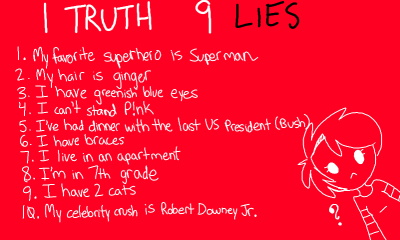 1 TRUTH 9 LIES
1. My favorite superhero is Superman
2. My hair is ginger
3. I have greenish blue eyes
4. I can't stand P!nk
5. I've had dinner with the last US President (Bush)
6. I have braces
7. I live in an apartment
8. I'm in 7th grade
9. I have 2 cats
10. My celebrity crush is Robert Downey Jr.
?